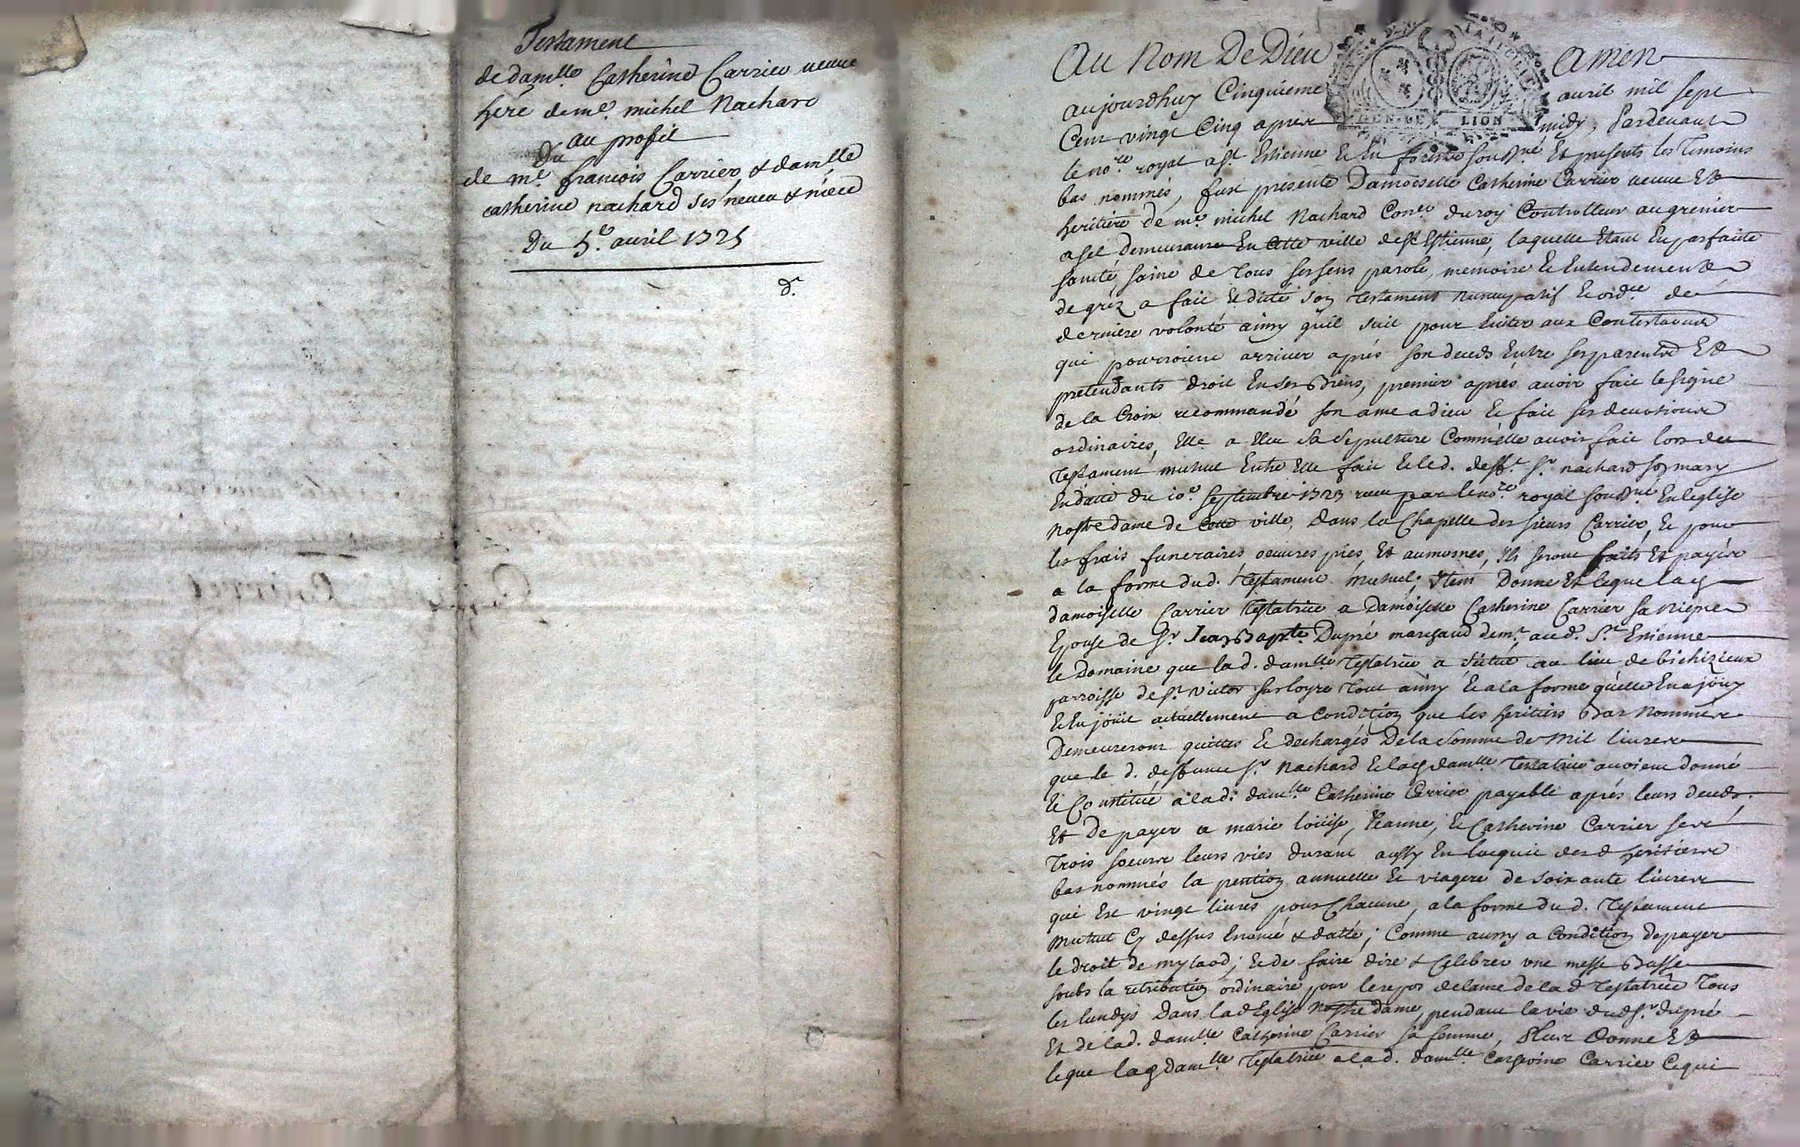 Testament
de damlle Catherine Carrier veuve
here de me michel Nachard
au profit
Du
de me françois Carrier & damlle
catherine nachard ses neveu & niéce
Du 5e avril 1725
Au Nom De Dieu Amen
aujourdhuy Cinquieme avril mil sept
Cent vingt Cinq apres midy, Pardevant
le nore royal a st Etienne soubsné Et presents les Temoins
bas nommés, fust presente Damoiselle Catherine Carrier veuve Et
heritiere de me michel Nachard Coner du roy Controlleur au grenier
a sel demeurante En cette ville de st Estienne, laquelle Etant En parfaite
santé, saine de tous ses sens parole, memoire Et Entendement
de gréz a fait Et dicté son testament nuncupatif Et ordce de
derniere volonté ainsy qu'il suit pour Eviter aux Contestations
qui pourroient arriver aprés son deceds Entre ses parents Et
pretendants droit En ses Biens, premier aprés avoir fait le signe
de la Croix recommandé son ame a dieu Et fait ses devotions
ordinaires, Elle a Eleu sa sepulture Comme elle avoit fait lors du
Testament mutuel Entre Elle fait Et led. defft sr nachard son mary
En datte du 10e septembre 1723 receu par le nore royal soubsné En l'eglise
nostre dame de cette ville, dans la Chapelle des sieurs Carrier, Et pour
les frais funeraires oeuvres pies Et aumosnes, Ils seront faits Et payés
a la forme dud. Testament mutuel; Item Donne Et legue lad
damoiselle Carrier testatrice a Damoiselle Catherine Carrier sa niepce
Epouse de sr Jean Bapte Dupré marchand demt aud. st Etienne
le Domaine que lad. damlle Testatrice a situé au lieu de bichizieux
parroisse de st victor sur loyre tout ainsy Et a la forme qu'elle En a jouy
Et En jouit actuellement a condition que les heritiers Bas Nommés
Demeureront quittes Et dechargés De la somme de Mil livres
que le d. deffunt sr Nachard Et lad damlle Testatrice avoient donné
Et Constitué a la d. damlle Catherine Carrier payable aprés leurs deceds.
Et de payer a marie loüise, Jeanne, Et Catherine Carrier ses
Trois soeurs leurs vies durant aussy En l'acquit desd heritiers
bas nommés la pention annuelle Et viagere de soixante livres
qui Est vingt livres pour Chacune, a la forme du d. Testament
mutuel Cy dessus Enoncé & datté; Comme aussy a condition de payer
le droit de mylaod; Et de faire dire & Celebrer une messe Basse
soubs la retribution ordinaire pour le repos de l'ame de la d Testatrice Tous
les lundys Dans lad Eglise Nostre dame, pendant la vie dud sr dupré
Et de la d. damlle Catherine Carrier sa femme, Plus Donne Et
legue lad damlle Testatrice a la d. damlle Catherine Carrier Ce qui